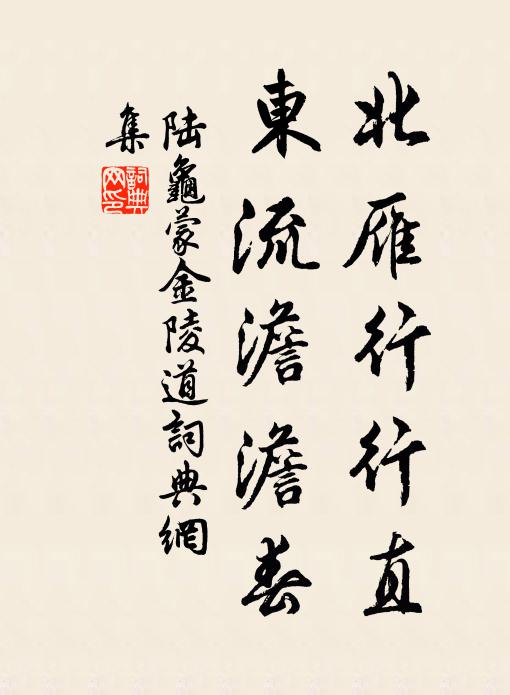 北雁行行直
東流澹澹春
陆龜蒙金陵道詞典網
集
詞典
网印